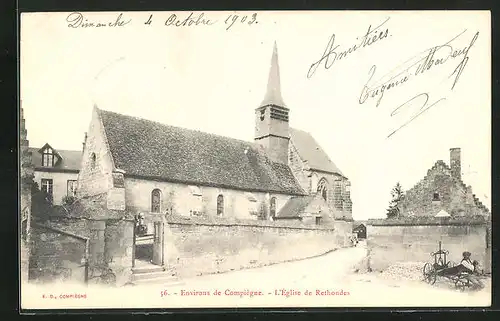 Dimanche 4 Octobre 1903.
Amitiés.
Eugénie
36. - Environs de Compiègne. - L'Église de Rethondes
E. D., COMPIÈGNE